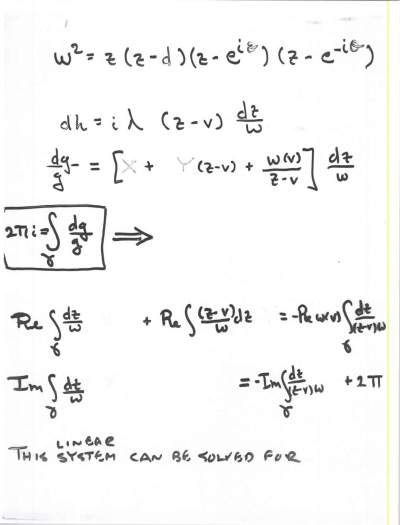 w² = z (z-d)(z-e^{iθ}) (z-e^{-iθ})
dh = i λ (z-v) dz/w
dg/g = [X + Y(z-v) + w(v)/(z-v)] dz/w
2πi = ∫_γ dg/g ⟹
Re ∫_γ dz/w + Re ∫ (z-v)/w dz = -Re w(v) ∫_γ dz/((z-v)w)
Im ∫_γ dz/w = -Im ∫_γ dz/((z-v)w) + 2π
THIS LINEAR SYSTEM CAN BE SOLVED FOR